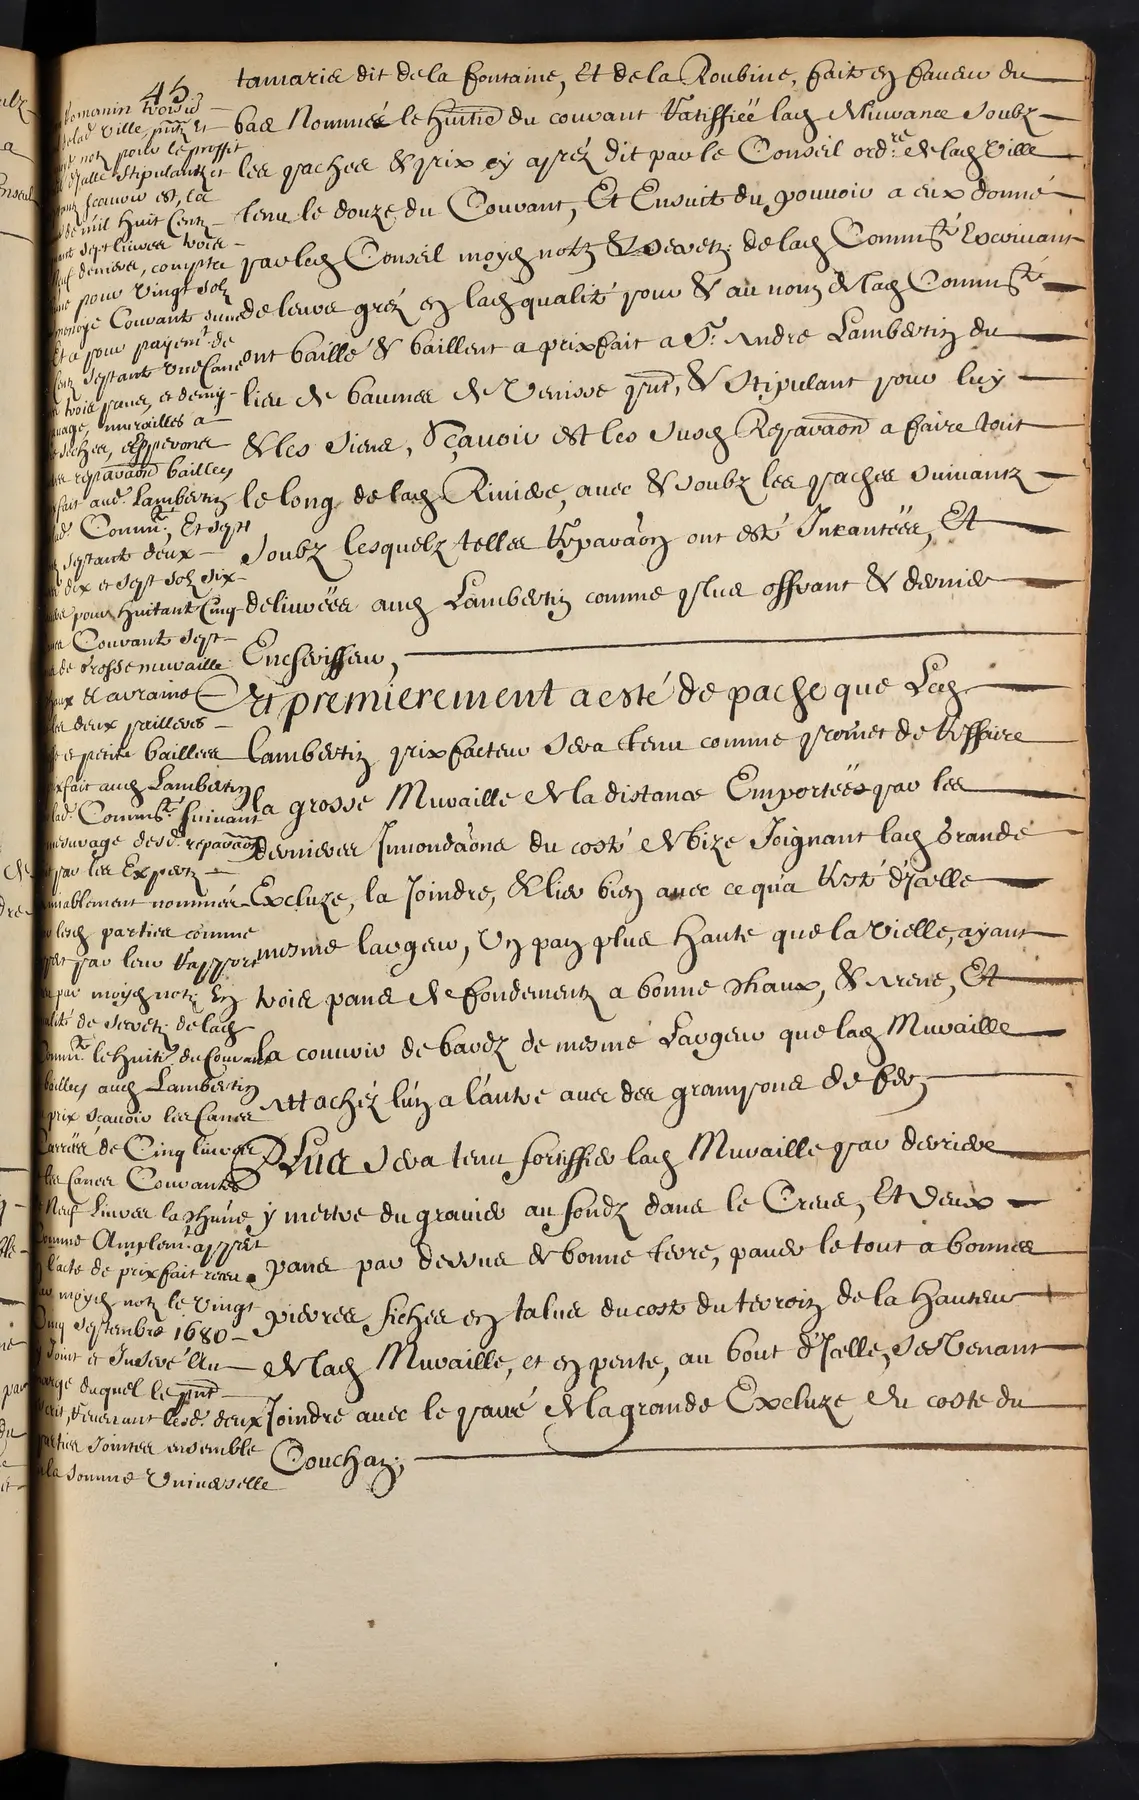 45
tamaris dit de la fontaine, Et de la Roubine, fait en faveur du
bas Nommés le huitie du courant Ratiffiée lad delivrance soubz
les paches & prix cy aprez dit par le Conseil ord.re de lad Ville
tenu le douze du Courant, Et Ensuit du pouvoir a eux donné
par led Conseil moyd not.e & secret.e de lad Comm.té Escrivant
de leurs grez en lad qualité pour & au nom de lad Comm.té
ont baillé & baillent a prixfait a S.r Andre Lambertin du
lieu de baumes de Venisse pnt, & stipulant pour luy
& les siens, Sçavoir est les susd Reparaõns a faire tout
le long de lad Riviere, avec & soubz les paches suivantz
soubz lesquelz telles Reparaõns ont esté Incantées, Et
delivrées aud Lambertin comme plus offrant & dernier
Encherisseur,
Et premierement a esté de pache que Led
Lambertin prixfacteur sera tenu comme promet de Reffaire
la grosse Muraille de la distance Emportées par les
dernieres Innondaõns du costé de bize Joignant lad Grande
Excluze, la Joindre, & lier bien avec ce qu'a Resté d'Icelle
mesme largeur, Un pan plus haute que la Vielle, ayant
trois pans de fondement a bonne chaux, & arene, Et
la couvrir de bardz de mesme Largeur que lad Muraille
Attachéz l'un a l'autre avec des grampons de fer
Plus sera tenu fortiffier lad Muraille par derriere
y mettre du gravier au fondz dans le Creus, Et deux
pans par dessus de bonne terre, paver le tout a bonnes
pierres fichees en talus du costé du terroin de la hauteur
de lad Muraille, et en pente, au bout d'Icelle, Se Venant
Joindre avec le pavé de la grande Excluze du costé du
Couchan,
Romanin troisie
delad. Ville pntz Et
not pour le proffit
d'Jcelle stipulantz et
sçavoir est, la
de mil huit Centz
sept livres trois
deniers, comptés
pour Vingt solz
monoye Courant
Et a pour payem.t de
septante une Cane
trois pans, et demy
murailles a
seches, esperons
reparaõns baillees
fait aud. Lambertin
lad. Comm.té, Et sept
septante deux
dix et sept solz six
pour huitant Cinq
Courant sept
de Grosse muraille
chaux & araine
les deux pailleres
et petite baillees
prixfait aud Lambertin
lad. Comm.té suivant
mesurage desd. reparaõns
par les Expertz
amiablement nommés
par lesd parties comme
par leur Rapport
par moyd not.e En
qualité de secret.e de lad
Comm.té le huitie du Courant
baillees aud Lambertin
prix sçavoir les Canes
Carrées de Cinq livres
les Canes Courantes
Neuf Livres la chune
Comme Amplem.t appert
l'acte de prixfait receu
par moyd not.e le Vingt
Cinq Septembre 1680
Joint et Inseré Au
marge duquel le pnt
Revenant lesd. deux
parties Jointes ensemble
a la somme Universelle